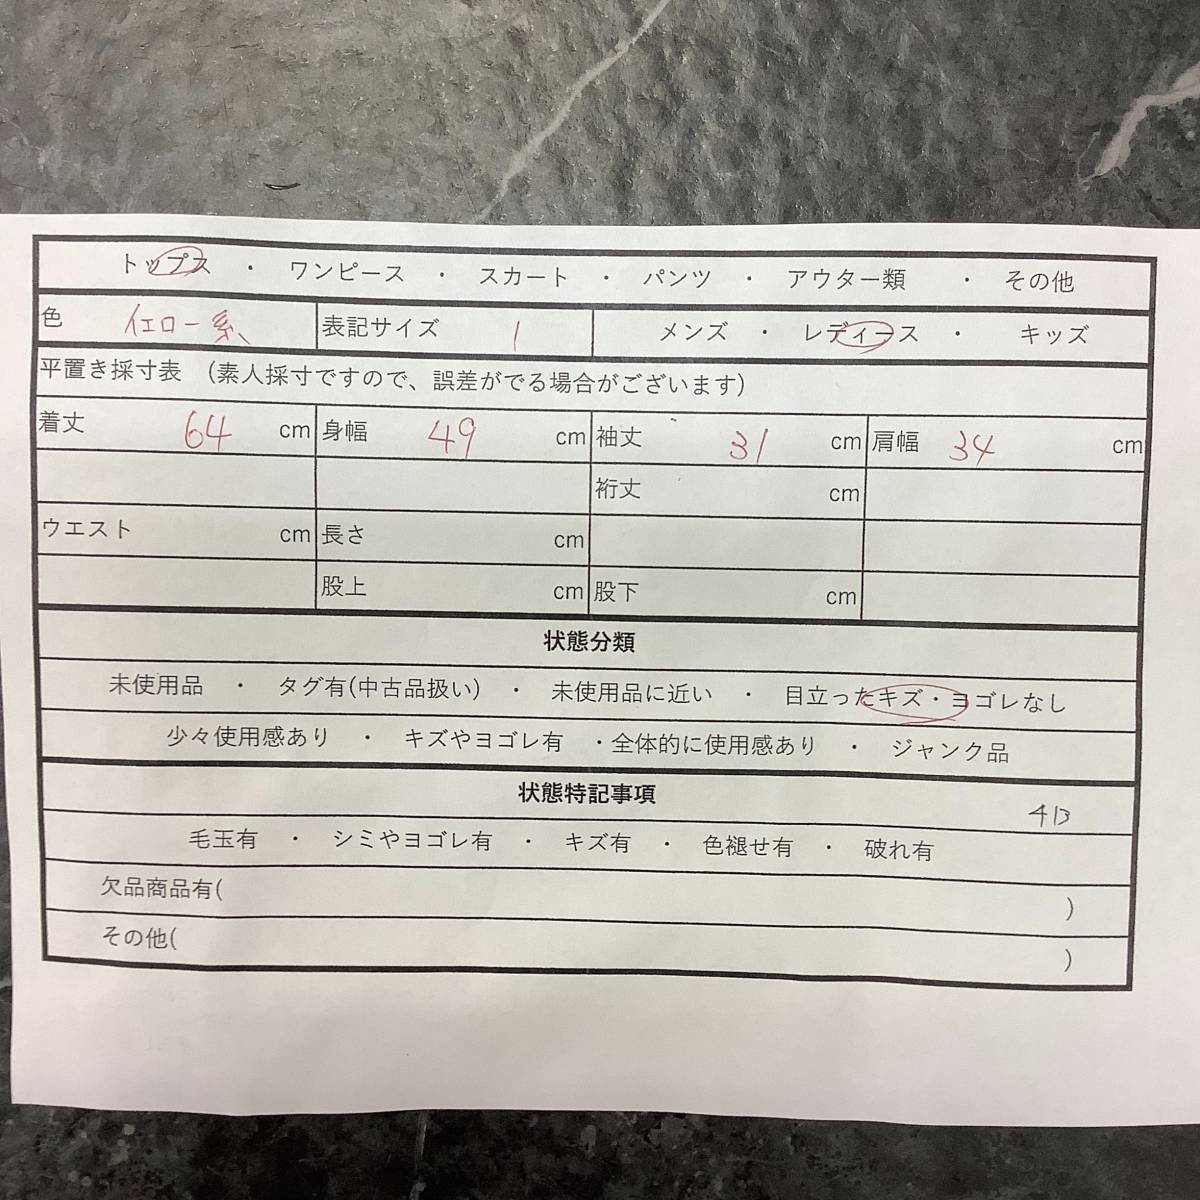 トップス ・ ワンピース ・ スカート ・ パンツ ・ アウター類 ・ その他
色 イエロー系、 表記サイズ 1 メンズ ・ レディース ・ キッズ
平置き採寸表 (素人採寸ですので、誤差がでる場合がございます)
着丈 64 cm 身幅 49 cm 袖丈 31 cm 肩幅 34 cm
裄丈 cm
ウエスト cm 長さ cm
股上 cm 股下 cm
状態分類
未使用品 ・ タグ有(中古品扱い) ・ 未使用品に近い ・ 目立ったキズ・ヨゴレなし
少々使用感あり ・ キズやヨゴレ有 ・全体的に使用感あり ・ ジャンク品
状態特記事項
毛玉有 ・ シミやヨゴレ有 ・ キズ有 ・ 色褪せ有 ・ 破れ有
欠品商品有( )
その他( )